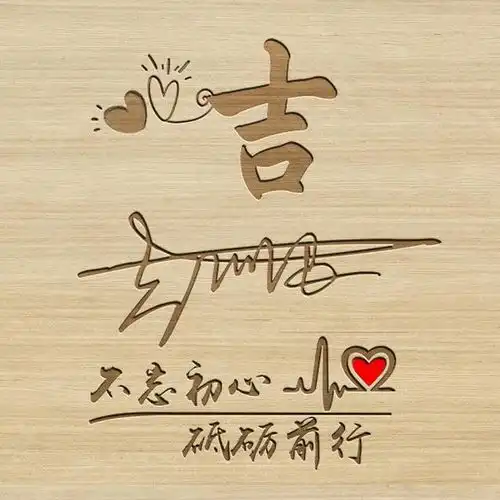 吉
不忘初心
砥砺前行